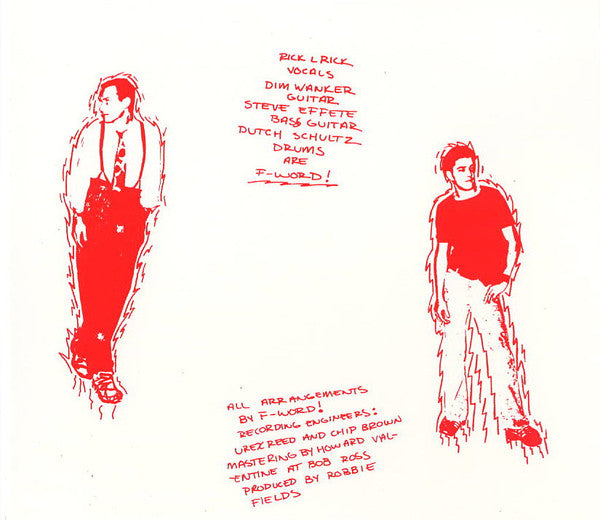 RICK L RICK
VOCALS
DIM WANKER
GUITAR
STEVE EFFETE
BASS GUITAR
DUTCH SCHULTZ
DRUMS
ARE
F-WORD!
ALL ARRANGEMENTS
BY F-WORD!
RECORDING ENGINEERS:
UREX REED AND CHIP BROWN
MASTERING BY HOWARD VAL-
ENTINE AT BOB ROSS
PRODUCED BY ROBBIE
FIELDS